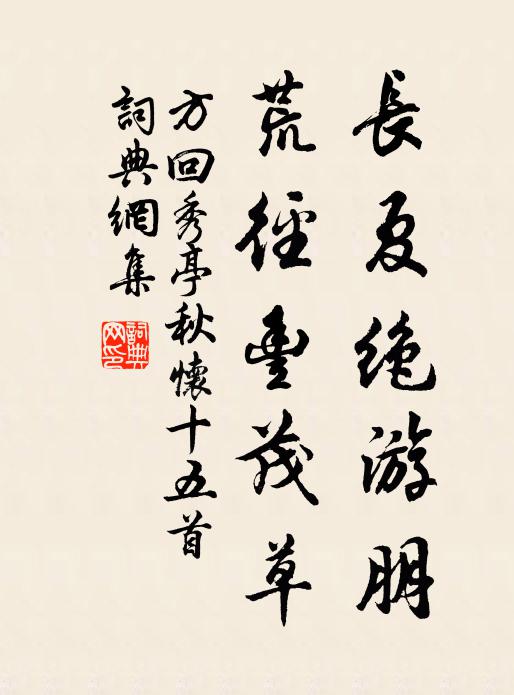 長夏绝游朋
荒徑豊茂草
方回秀亭秋懷十五首
詞典網集
詞典网印